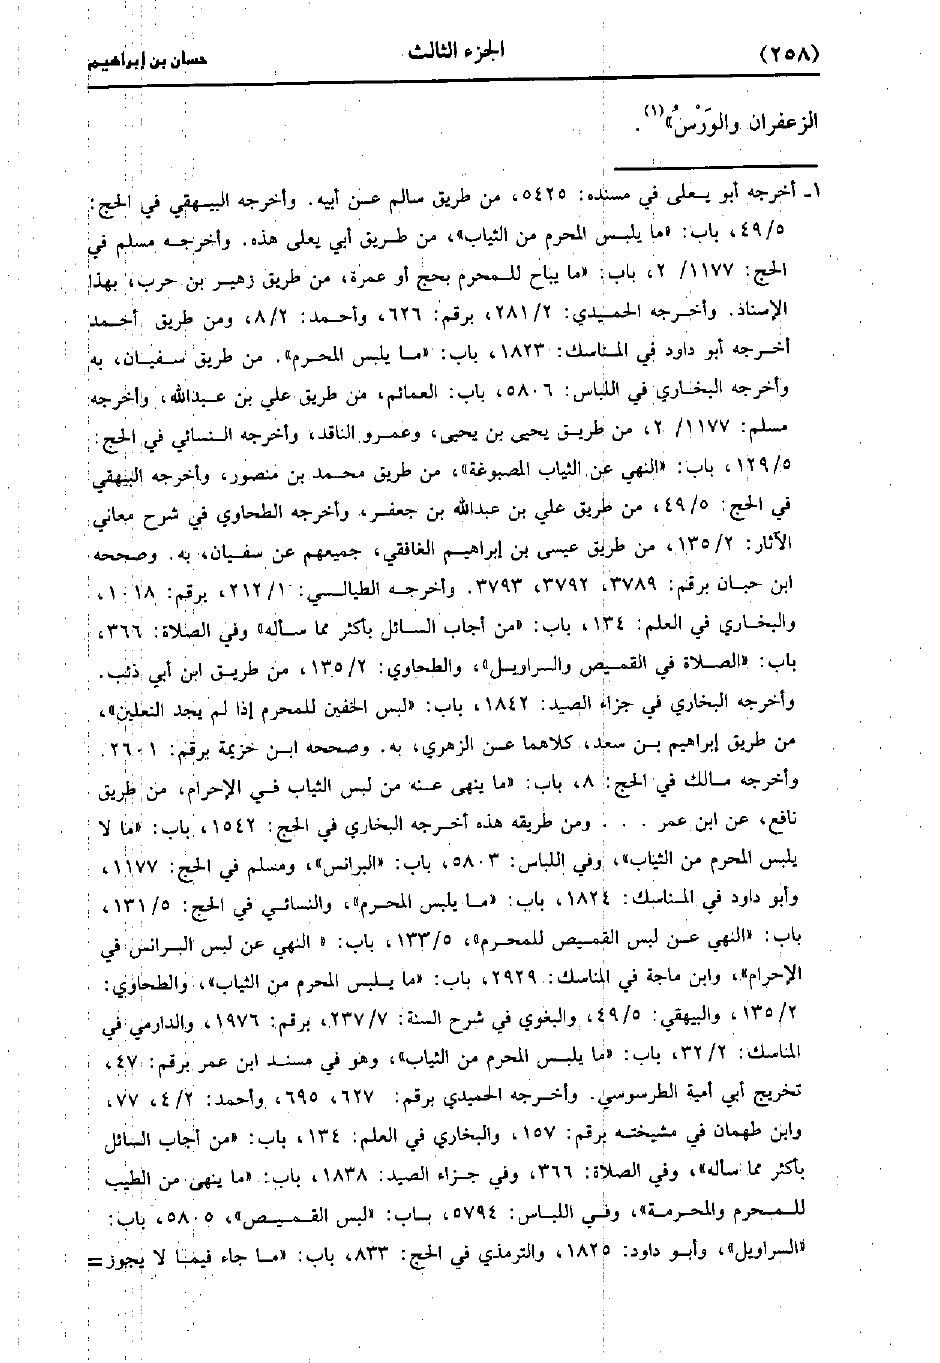 (٢٥٨) الجزء الثالث حسان بن إبراهيم
الزعفران والوَرْسُ»(١).
١ـ أخرجه أبو يعلى في مسنده: ٥٤٢٥، من طريق سالم عن أبيه. وأخرجه البيهقي في الحج:
٤٩/٥، باب: «ما يلبس المحرم من الثياب»، من طريق أبي يعلى هذه. وأخرجه مسلم في
الحج: ١١٧٧/ ٢، باب: «ما يباح للمحرم بحج أو عمرة، من طريق زهير بن حرب، بهذا
الإسناد. وأخرجه الحميدي: ٢٨١/٢، برقم: ٦٢٦، وأحمد: ٨/٢، ومن طريق أحمد
أخرجه أبو داود في المناسك: ١٨٢٣، باب: «ما يلبس المحرم». من طريق سفيان، به
وأخرجه البخاري في اللباس: ٥٨٠٦، باب: العمائم، من طريق علي بن عبدالله، وأخرجه
مسلم: ١١٧٧/ ٢، من طريق يحيى بن يحيى، وعمرو الناقد، وأخرجه النسائي في الحج:
١٢٩/٥، باب: «النهي عن الثياب المصبوغة»، من طريق محمد بن منصور، وأخرجه البيهقي
في الحج: ٤٩/٥، من طريق علي بن عبدالله بن جعفر، وأخرجه الطحاوي في شرح معاني
الآثار: ١٣٥/٢، من طريق عيسى بن إبراهيم الغافقي، جميعهم عن سفيان، به. وصححه
ابن حبان برقم: ٣٧٨٩، ٣٧٩٢، ٣٧٩٣. وأخرجه الطيالسي: ٢١٢/١، برقم: ١٠١٨،
والبخاري في العلم: ١٣٤، باب: «من أجاب السائل بأكثر مما سأله» وفي الصلاة: ٣٦٦،
باب: «الصلاة في القميص والسراويل»، والطحاوي: ١٣٥/٢، من طريق ابن أبي ذئب.
وأخرجه البخاري في جزاء الصيد: ١٨٤٢، باب: «لبس الخفين للمحرم إذا لم يجد النعلين»،
من طريق إبراهيم بن سعد، كلاهما عن الزهري، به. وصححه ابن خزيمة برقم: ٢٦٠١.
وأخرجه مالك في الحج: ٨، باب: «ما ينهى عنه من لبس الثياب في الإحرام، من طريق
نافع، عن ابن عمر . . . ومن طريقه هذه أخرجه البخاري في الحج: ١٥٤٢، باب: «ما لا
يلبس المحرم من الثياب»، وفي اللباس: ٥٨٠٣، باب: «البرانس»، ومسلم في الحج: ١١٧٧،
وأبو داود في المناسك: ١٨٢٤، باب: «ما يلبس المحرم»، والنسائي في الحج: ١٣١/٥،
باب: «النهي عن لبس القميص للمحرم»، ١٣٣/٥، باب: « النهي عن لبس البرانس في
الإحرام»، وابن ماجة في المناسك: ٢٩٢٩، باب: «ما يلبس المحرم من الثياب»، والطحاوي:
١٣٥/٢، والبيهقي: ٤٩/٥، والبغوي في شرح السنة: ٢٣٧/٧، برقم: ١٩٧٦، والدارمي في
المناسك: ٣٢/٢، باب: «ما يلبس المحرم من الثياب»، وهو في مسند ابن عمر برقم: ٤٧،
تخريج أبي أمية الطرسوسي. وأخرجه الحميدي برقم: ٦٢٧، ٦٩٥، وأحمد: ٤/٢، ٧٧،
وابن طهمان في مشيخته برقم: ١٥٧، والبخاري في العلم: ١٣٤، باب: «من أجاب السائل
بأكثر مما سأله»، وفي الصلاة: ٣٦٦، وفي جزاء الصيد: ١٨٣٨، باب: «ما ينهى من الطيب
للمحرم والمحرمة»، وفي اللباس: ٥٧٩٤، باب: «لبس القميص»، ٥٨٠٥، باب:
«السراويل»، وأبو داود: ١٨٢٥، والترمذي في الحج: ٨٣٣، باب: «ما جاء فيما لا يجوز=